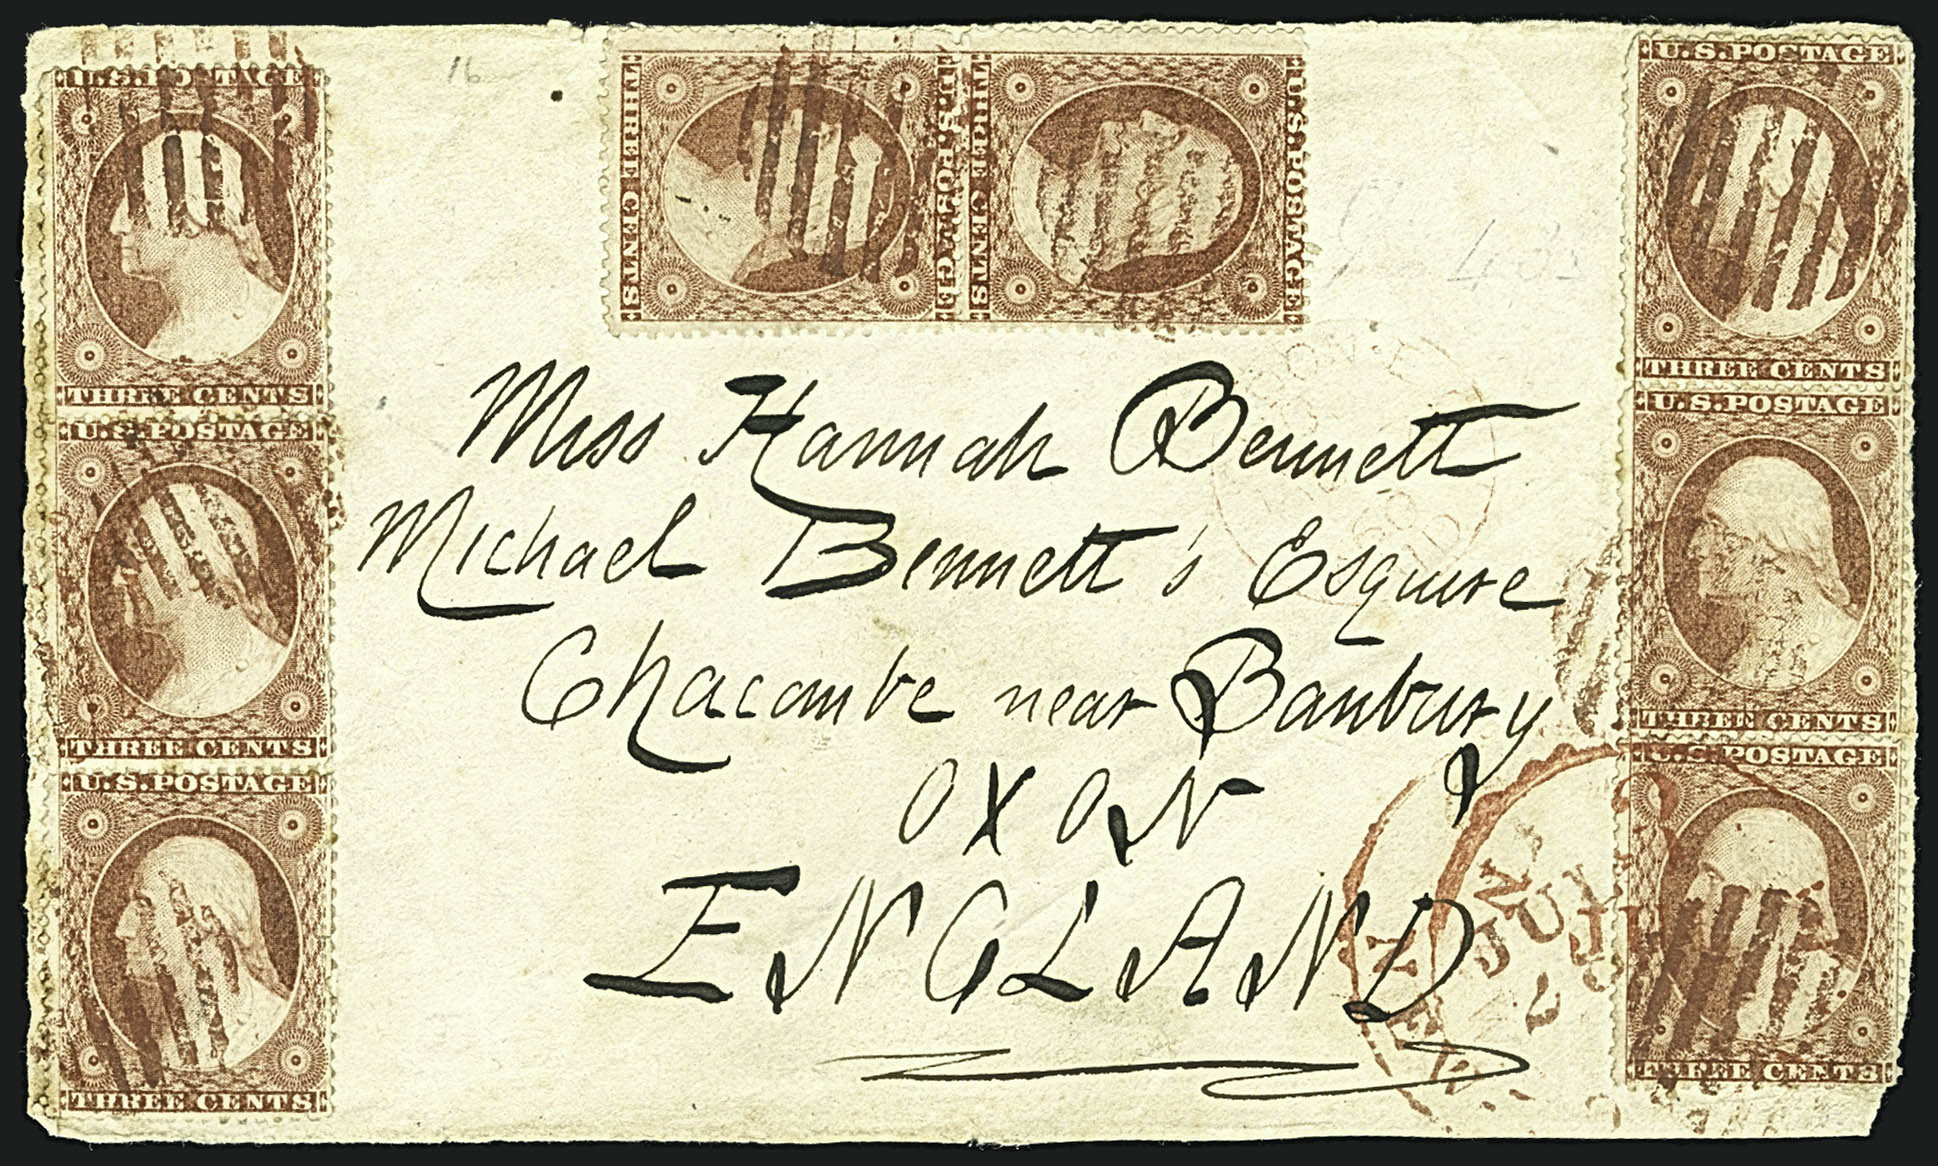 U.S.POSTAGE
THREE CENTS
U.S.POSTAGE
THREE CENTS
U.S.POSTAGE
THREE CENTS
THREE CENTS
U.S.POSTAGE
THREE CENTS
U.S.POSTAGE
U.S.POSTAGE
THREE CENTS
U.S.POSTAGE
THREE CENTS
U.S.POSTAGE
THREE CENTS
16
Miss Hannah Bennett
Michael Bennett's Esquire
Chacombe near Banbury
OXON
ENGLAND
JUL